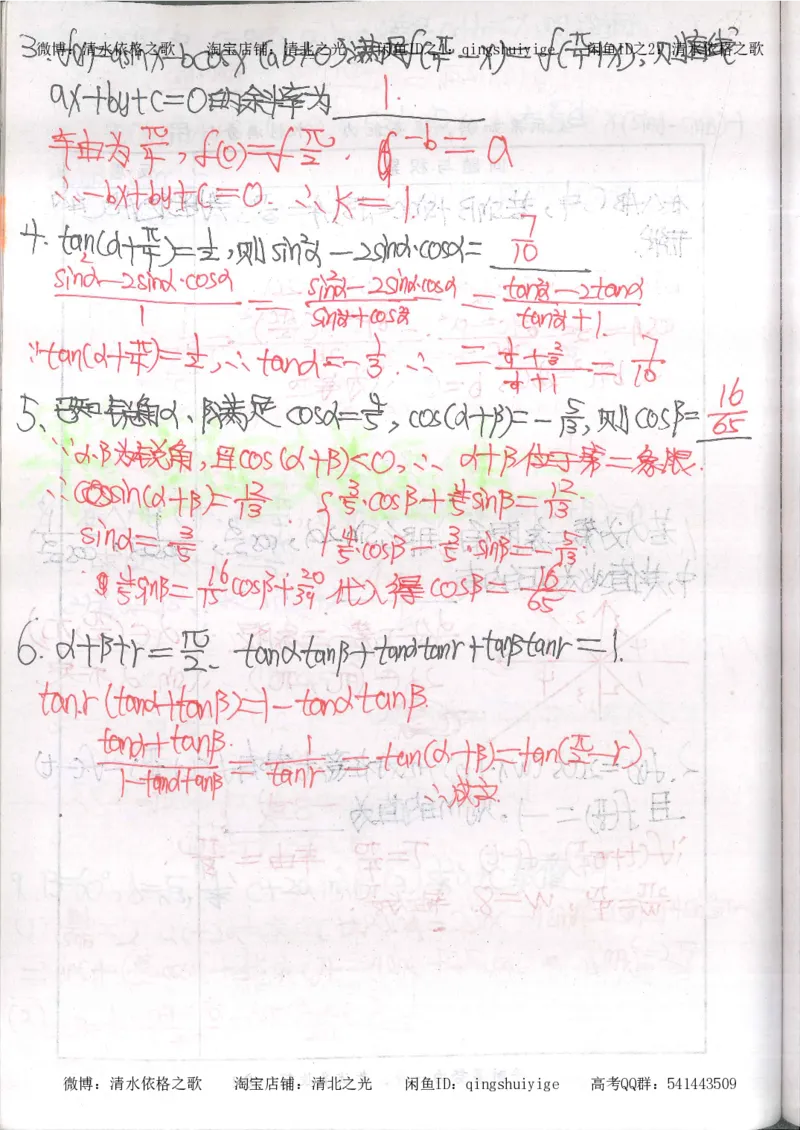 3. f(x)=asinx-bcosx (ab≠0)满足f(π/4-x)=f(π/4+x), 则直线
微博：清水依格之歌 淘宝店铺：清北之光 闲鱼ID之1：qingshuiyige 闲鱼ID之2：清水依格之歌
ax+by+c=0的斜率为 1
车由为π/4, f(0)=f π/2. -b=a
∴-bx+by+c=0 ∴K=1
4. tan(α+π/4)=1/2, 则sin²α-2sinα·cosα= 7/10
sin²α-2sinα·cosα/1 = sin²α-2sinα·cosα/sin²α+cos²α = tan²α-2tanα/tan²α+1
∵tan(α+π/4)=1/2, ∴tanα=-1/3. ∴ = 1/9+2/3/1/9+1 = 7/10
5. 已知锐角α、β满足 cosα=4/5, cos(α+β)=-5/13, 则cosβ= 16/65
∵α.β为锐角, 且cos(α+β)<0, ∴α+β位于第二象限.
∴sin(α+β)=12/13 { 3/5·cosβ+4/5sinβ=12/13
sinα=3/5 4/5·cosβ-3/5·sinβ=-5/13
4/5sinβ=16/15cosβ+20/39 代入得cosβ=16/65
6. α+β+r=π/2. tanαtanβ+tanαtanr+tanβtanr=1.
tanr(tanα+tanβ)=1-tanαtanβ.
tanα+tanβ/1-tanαtanβ = 1/tanr = tan(α+β)=tan(π/2-r)
∴成立.
微博：清水依格之歌 淘宝店铺：清北之光 闲鱼ID：qingshuiyige 高考QQ群：541443509